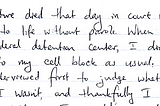 ture died that day in court
to life without parole. When
deral detention center, I di
to my cell block as usual.
terviewed first to judge whet
I wasn't, and thankfully I